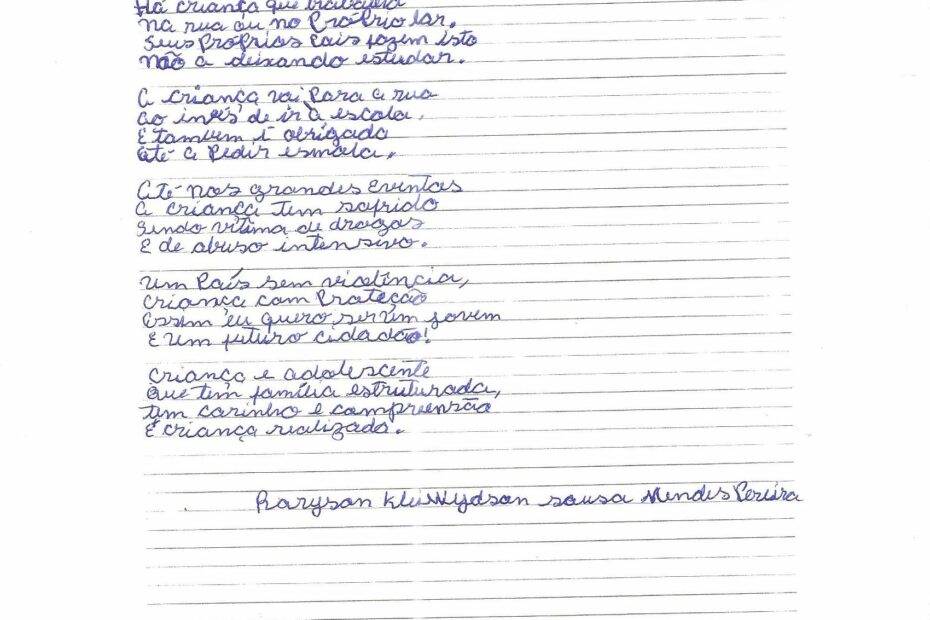 Há criança que trabalha
na rua ou no próprio lar.
Seus próprios pais fazem isto
Não a deixando estudar.
A criança vai para a rua
ao invés de ir à escola.
E também é obrigado
até a pedir esmola.
Até nos grandes eventos
A criança tem sofrido
Sendo vítima de drogas
E de abuso intensivo.
Um País sem violência,
criança com proteção
Assim eu quero ser um jovem
E um futuro cidadão!
Criança e adolescente
Que tem família estruturada,
tem carinho e compreensão
É criança realizada.
Raryson Sousa Mendes Pereira